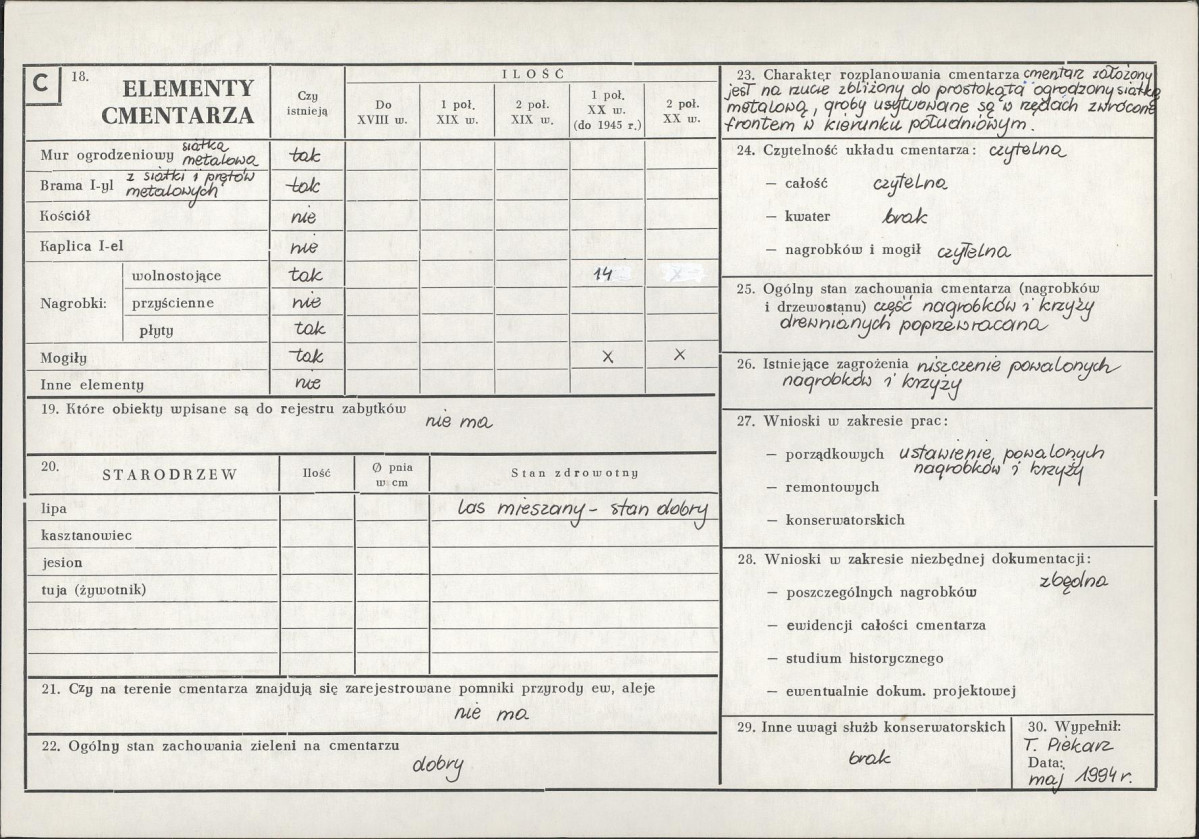 C 18. ELEMENTY
CMENTARZA
Czy
istnieją
ILOŚĆ
Do
XVIII w.
1 poł.
XIX w.
2 poł.
XIX w.
1 poł.
XX w.
(do 1945 r.)
2 poł.
XX w.
Mur ogrodzeniowy siatka metalowa tak
Brama I-yl z siatki i prętów metalowych tak
Kościół nie
Kaplica I-el nie
Nagrobki: wolnostojące tak 14 x
przyścienne nie
płyty tak
Mogiły tak x x
Inne elementy nie
19. Które obiekty wpisane są do rejestru zabytków
nie ma
20. STARODRZEW Ilość Ø pnia
w cm
Stan zdrowotny
lipa las mieszany – stan dobry
kasztanowiec
jesion
tuja (żywotnik)
21. Czy na terenie cmentarza znajdują się zarejestrowane pomniki przyrody ew, aleje
nie ma
22. Ogólny stan zachowania zieleni na cmentarzu
dobry
23. Charakter rozplanowania cmentarza cmentarz założony
jest na rzucie zbliżony do prostokąta ogrodzony siatką
metalową, groby usytuowane są w rzędach zwrócone
frontem w kierunku południowym.
24. Czytelność układu cmentarza: czytelna
— całość czytelna
— kwater brak
— nagrobków i mogił czytelna
25. Ogólny stan zachowania cmentarza (nagrobków
i drzewostanu) część nagrobków i krzyży
drewnianych poprzewracana
26. Istniejące zagrożenia niszczenie powalonych
nagrobków i krzyży
27. Wnioski w zakresie prac:
— porządkowych ustawienie powalonych
nagrobków i krzyży
— remontowych
— konserwatorskich
28. Wnioski w zakresie niezbędnej dokumentacji:
zbędna
— poszczególnych nagrobków
— ewidencji całości cmentarza
— studium historycznego
— ewentualnie dokum. projektowej
29. Inne uwagi służb konserwatorskich
brak
30. Wypełnił:
T. Piekarz
Data:
maj 1994 r.